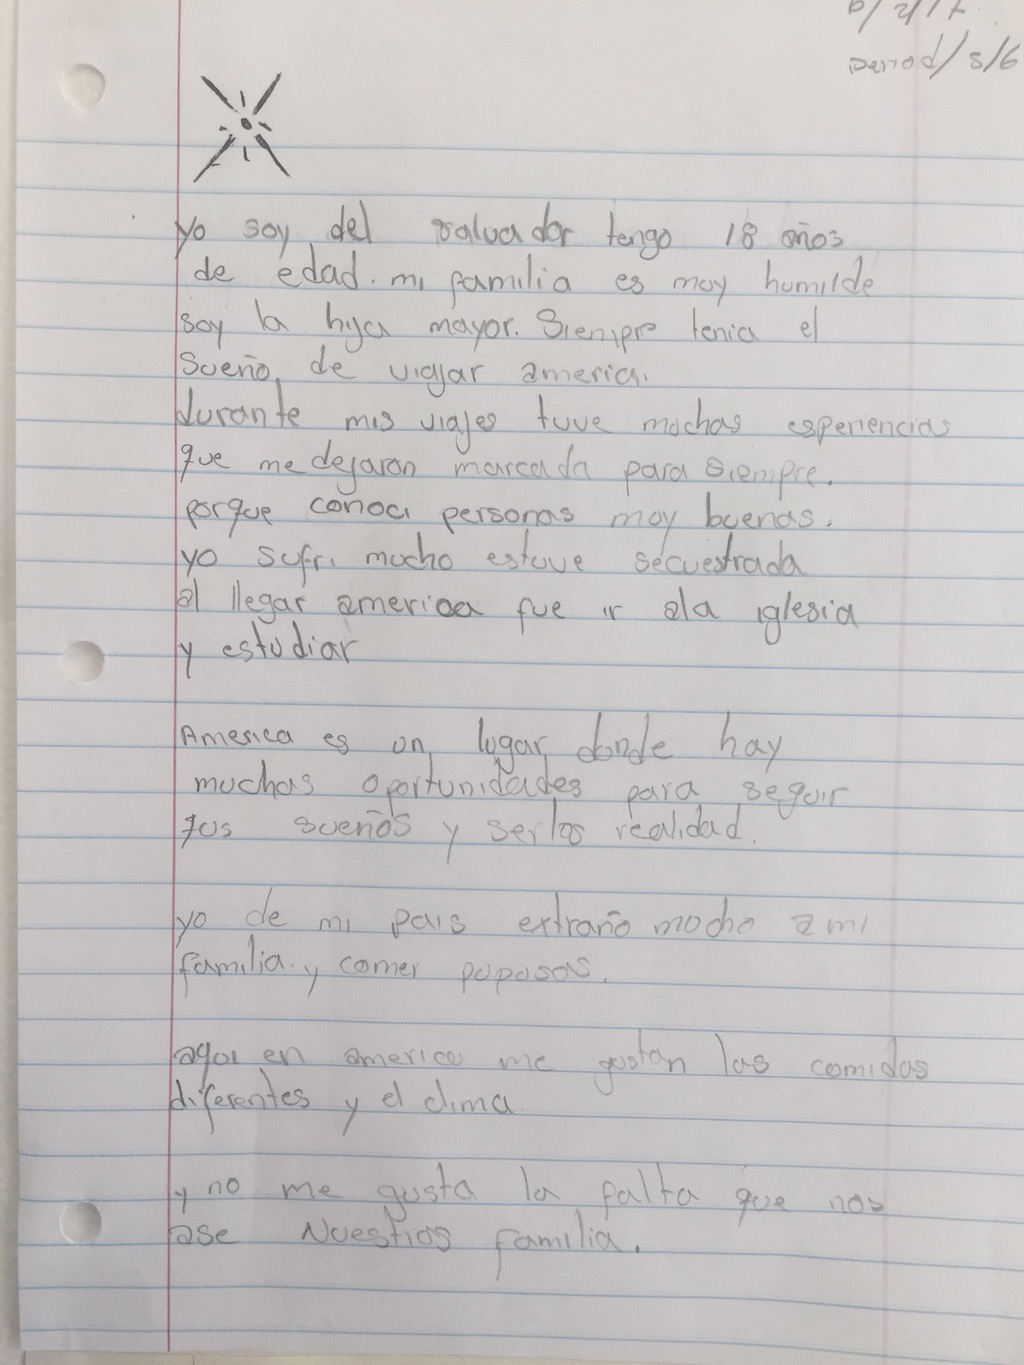 6/2/17
period/5/6
yo soy del salvador tengo 18 años
de edad. mi familia es muy humilde
soy la hija mayor. Siempre tenia el
Sueño de viajar america.
durante mis viajes tuve muchas esperiencias
que me dejaron marcada para siempre.
porque conoci personas muy buenas.
yo sufri mucho estuve secuestrada
al llegar america fue ir ala iglesia
y estudiar
America es un lugar donde hay
muchas oportunidades para seguir
tus sueños y serlos realidad.
yo de mi pais extraño mucho a mi
familia. y comer pupusas.
aqui en america me gustan las comidas
diferentes y el clima
y no me gusta la falta que nos
ase Nuestros familia.